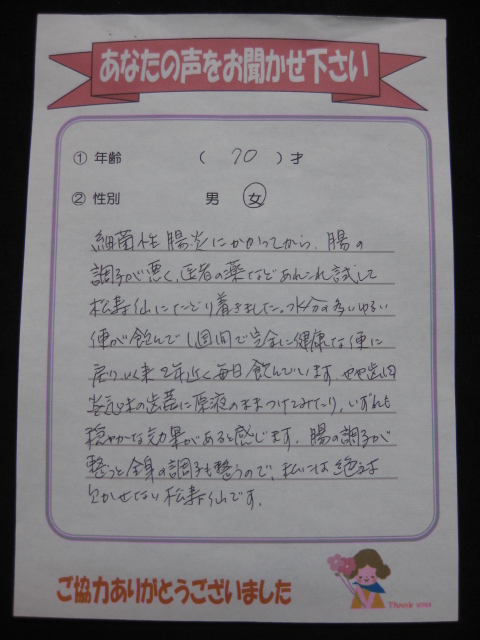 あなたの声をお聞かせ下さい
① 年齢 ( 70 ) 才
② 性別 男 女
細菌性腸炎にかかってから、腸の
調子が悪く、医者の薬などあれこれ試して
松寿仙にたどり着きました。水分の多いゆるい
便が飲んで1週間で完全に健康な便に
戻り、以来2年近く毎日飲んでいます。やや歯肉
炎気味の歯茎に原液のままつけてみたり、いずれも
穏やかな効果があると感じます。腸の調子が
整うと全身の調子も整うので、私には絶対
欠かせない松寿仙です。
ご協力ありがとうございました
Thank you